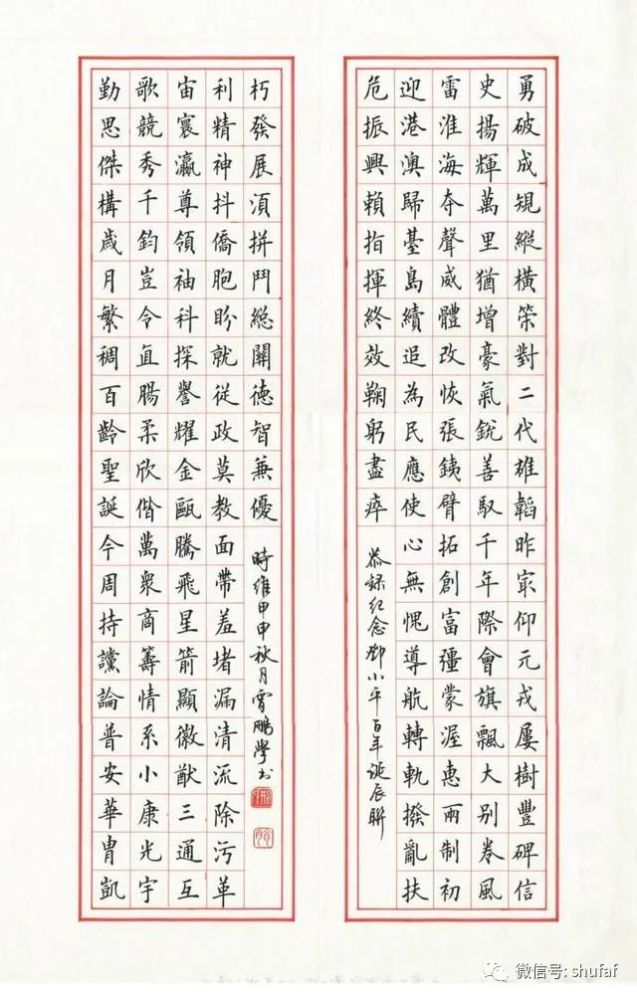 勇破成規縱橫策對二代雄韜昨冣仰元戎屢樹豐碑信
史揚輝萬里猶增豪氣銳善馭千年際會旗飄大别券風
雷淮海夺聲威體改恢張銕臂拓創富彊蒙渥惠兩制初
迎港澳歸臺島續追為民應使心無愧導航轉軌撥亂扶
危振興賴指揮終效鞠躬盡瘁
恭録纪念鄧小平百年诞辰聯
勤思傑構歲月繁稠百齡聖誕今周持讜論普安華冑凱
歌競秀千鈞豈令直腸柔欣偕萬衆商籌情系小康光宇
宙寰瀛尊領袖科探譽耀金甌騰飛星箭顯徽猷三通互
利精神抖僑胞盼就從政莫教面帶羞堵漏清流除污革
朽發展須拼鬥總關德智兼優
時維甲申秋月鵬學书
微信号: shufaf